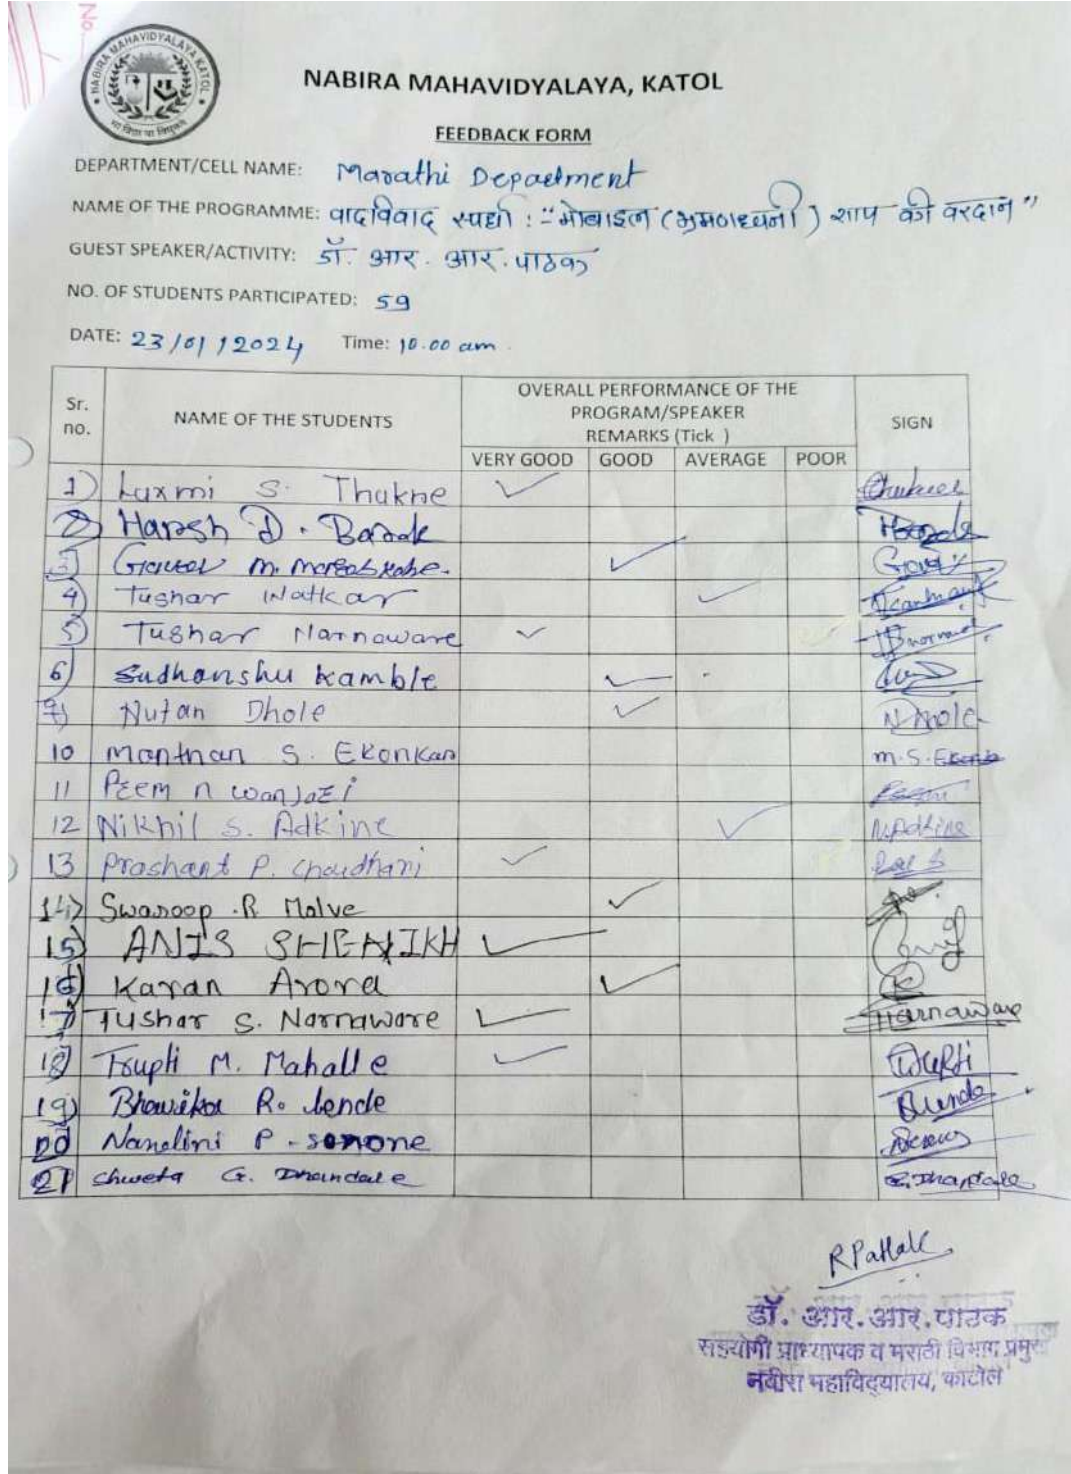 No
NABIRA MAHAVIDYALAYA KATOL
NABIRA MAHAVIDYALAYA, KATOL
FEEDBACK FORM
DEPARTMENT/CELL NAME: Marathi Depaetment
NAME OF THE PROGRAMME: वादविवाद स्पर्धा : "मोबाइल (भ्रमणध्वनी) शाप की वरदान"
GUEST SPEAKER/ACTIVITY: डॉ. आर. आर. पाठक
NO. OF STUDENTS PARTICIPATED: 59
DATE: 23/01/2024 Time: 10.00 am.
Sr. no. NAME OF THE STUDENTS OVERALL PERFORMANCE OF THE PROGRAM/SPEAKER REMARKS (Tick ) SIGN
VERY GOOD GOOD AVERAGE POOR
1) Luxmi S. Thakne ✓
2) Harsh D. Barak
3) M. ✓
4) Tushar Watkar ✓
5) Tushar Narnaware ✓
6) Sudhanshu Kamble ✓
7) Nutan Dhole ✓ N Dhole
10 Manthan S. Ekonkar M.S.
11 Peem n wanjazi
12 Nikhil S. Adkine ✓ N.Adkine
13 Prashant P. Choudhari ✓
14) Swaroop .R Malve ✓
15) ANIS SHEAIKH ✓
16) Karan Arora ✓
17) Tushar S. Narnaware ✓ Harnaware
18) Trupti M. Mahalle ✓ Trupti
19) Bhavika R. Lende
20) Nandini P. Sonone
21) Shweta G. Dhandale G. Dhandale
RPathak
डॉ. आर. आर. पाठक
सहयोगी प्राध्यापक व मराठी विभाग प्रमुख
नबीरा महाविद्यालय, काटोल